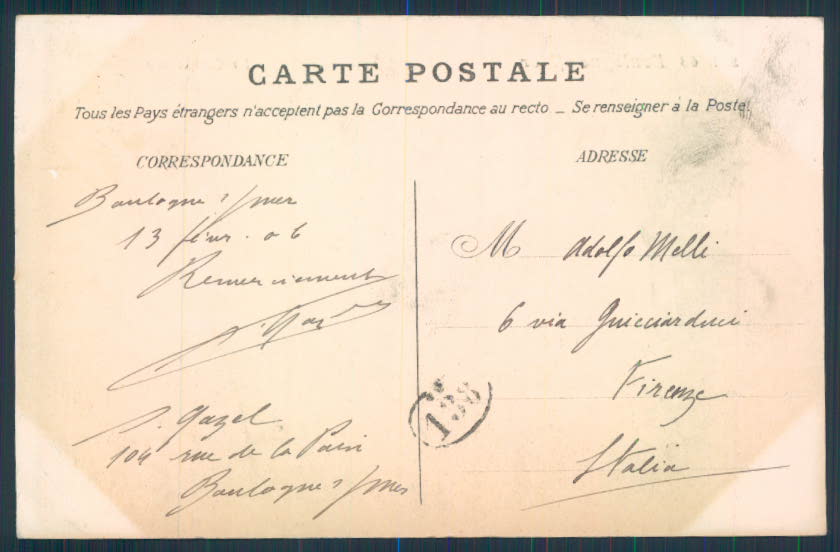 CARTE POSTALE
Tous les Pays étrangers n'acceptent pas la Correspondance au recto _ Se renseigner à la Poste.
CORRESPONDANCE
Boulogne s/mer
13 févr. 06
Remerciements
J. Gazel
104 rue de la Paix
Boulogne s/mer
ADRESSE
M Adolfo Melli
6 via Guicciardini
Firenze
Italia
138